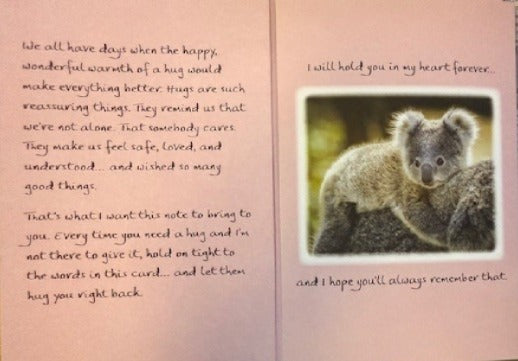 We all have days when the happy,
wonderful warmth of a hug would
make everything better. Hugs are such
reassuring things. They remind us that
we're not alone. That somebody cares.
They make us feel safe, loved, and
understood... and wished so many
good things.
That's what I want this note to bring to
you. Every time you need a hug and I'm
not there to give it, hold on tight to
the words in this card... and let them
hug you right back.
I will hold you in my heart forever...
and I hope you'll always remember that.